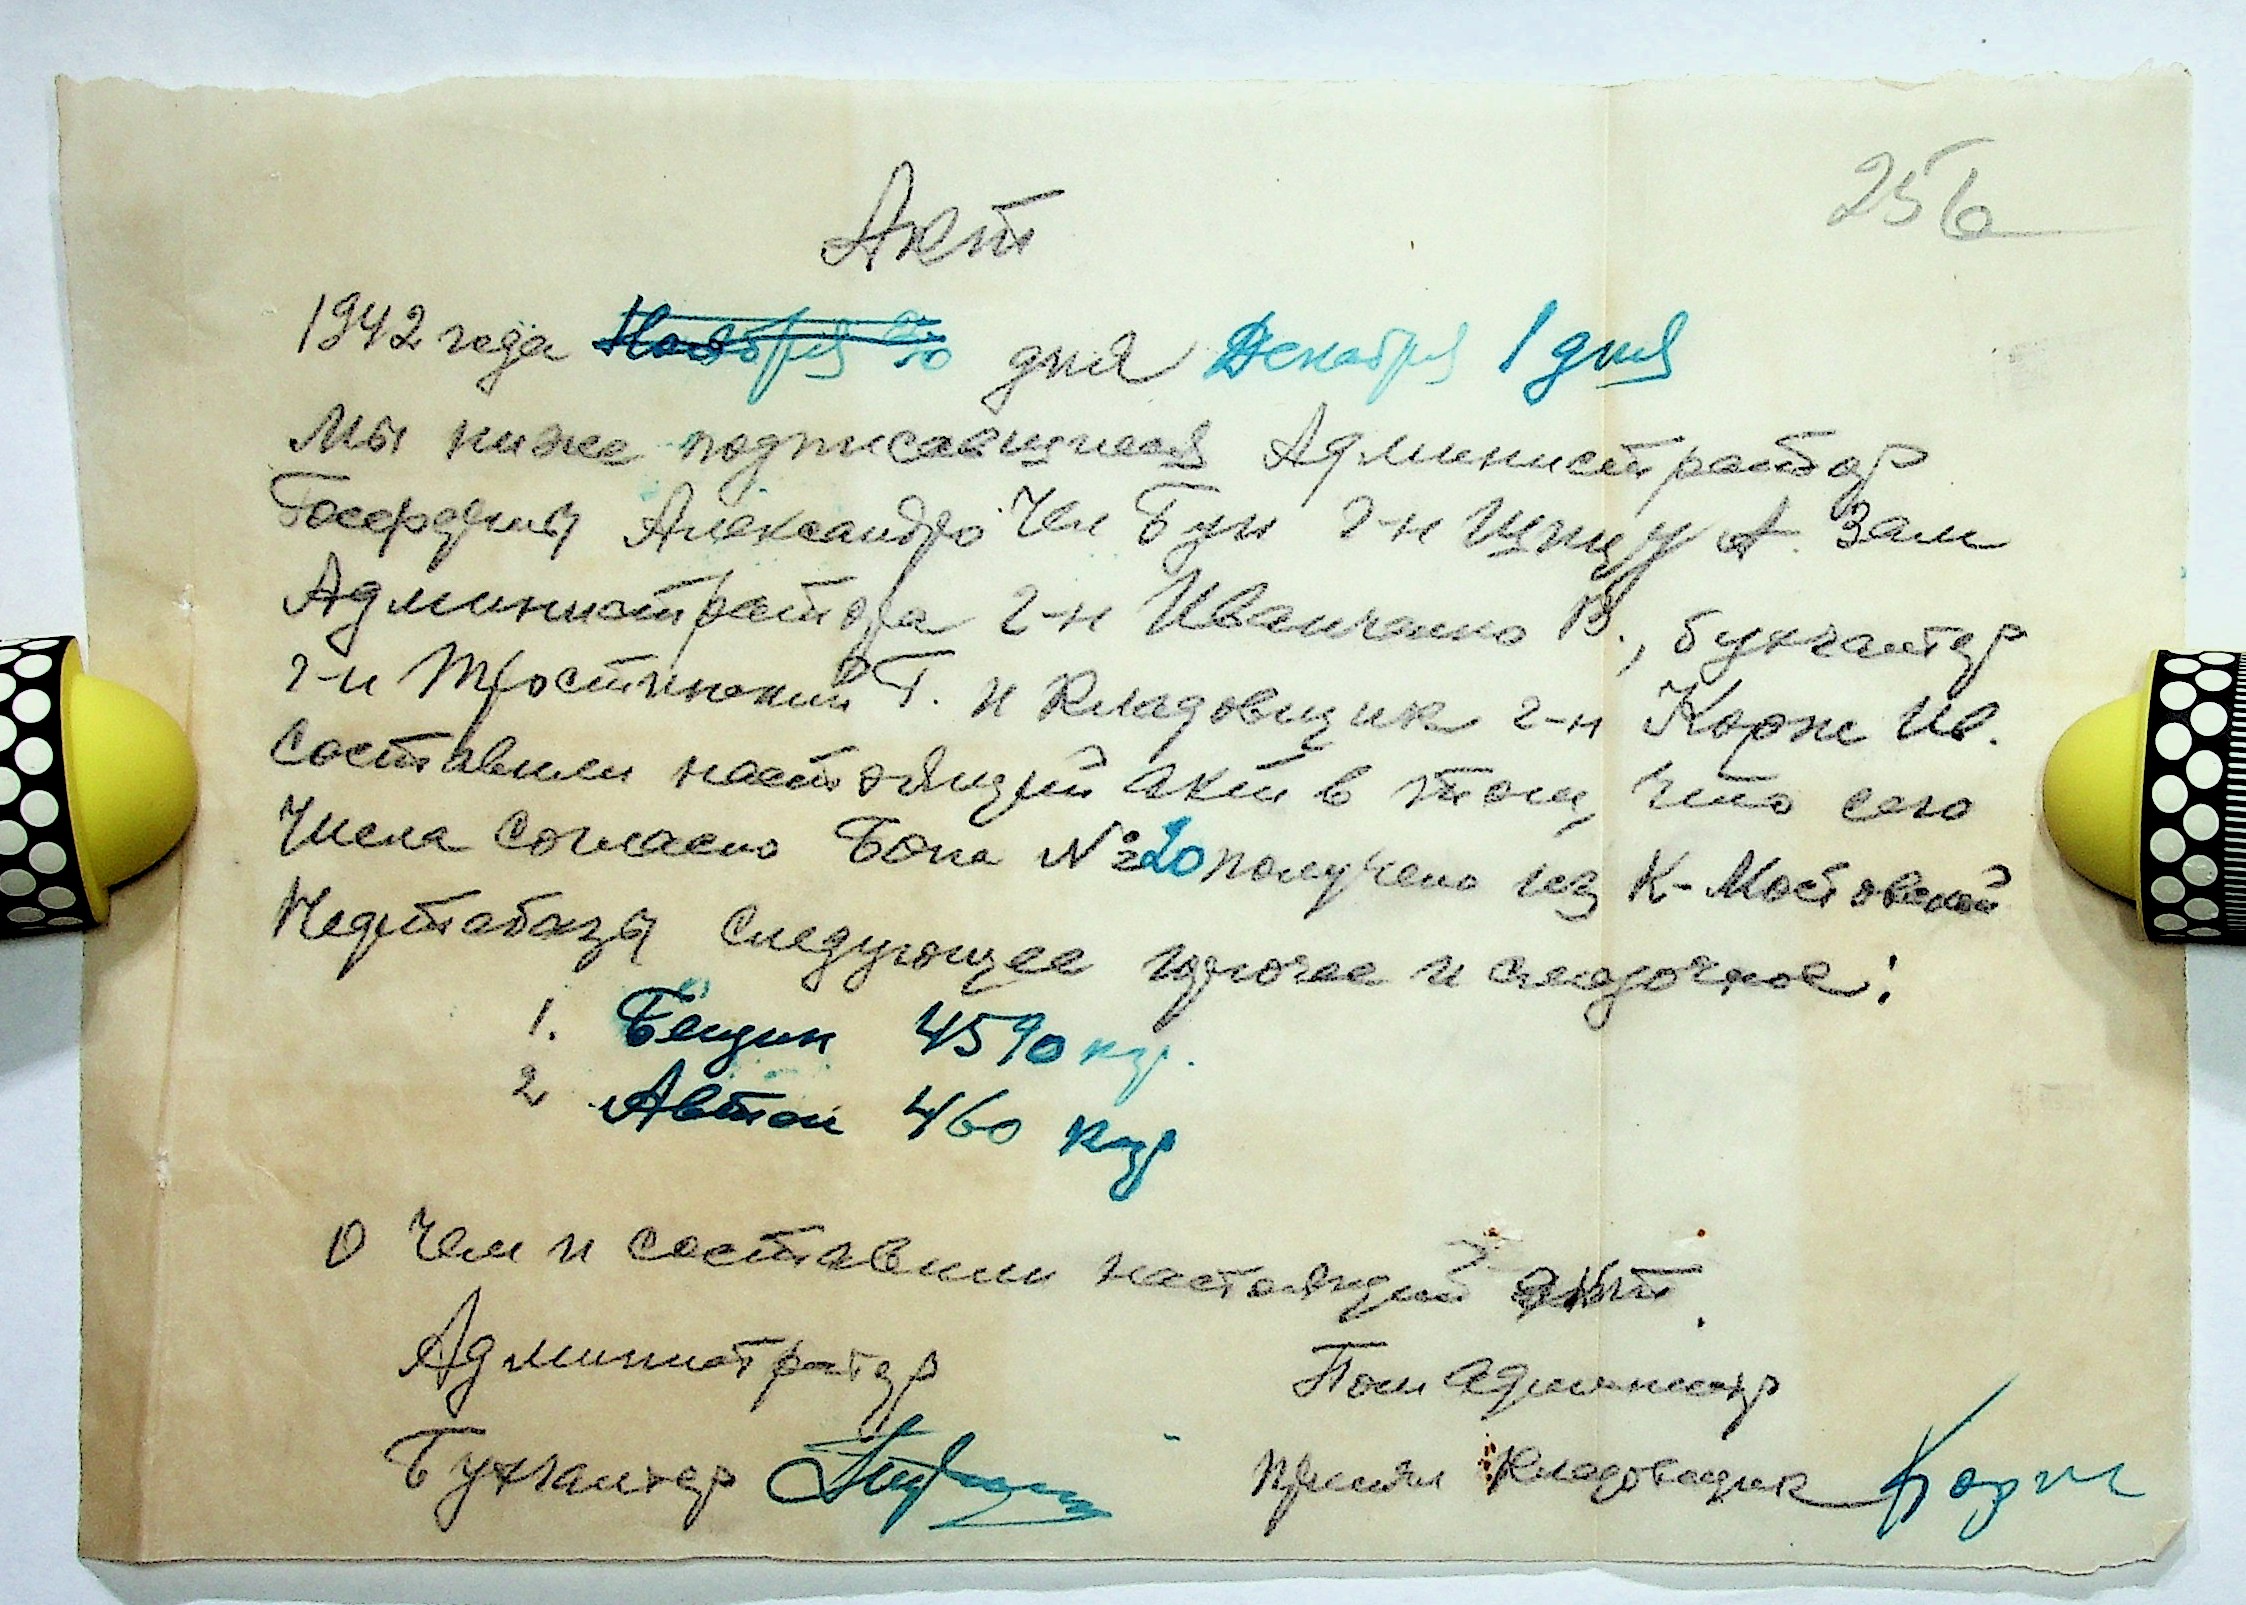 256
Акт
1942 года Ноября 30 дня Декабря 1 дня
Мы ниже подписавшиеся Администратор
Александро Чен Бун г-н А. Зам
Администратора г-н Иванченко В., бухгалтер
г-н Тростинский Г. и Кладовщик г-н Корж Ив.
составили настоящий акт в том, что сего
числа согласно Бона № 20 получено из К-Мостовской
Нефтабазы следующее горючее и смазочное:
1. Бензин 4590 кгр.
2 Автол 460 кгр
О чем и составили настоящий акт.
Администратор
Пом Администр
Бухгалтер
Принял Кладовщик Корж